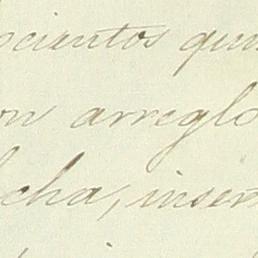 ocientos quin
on arreglo
cha, inser